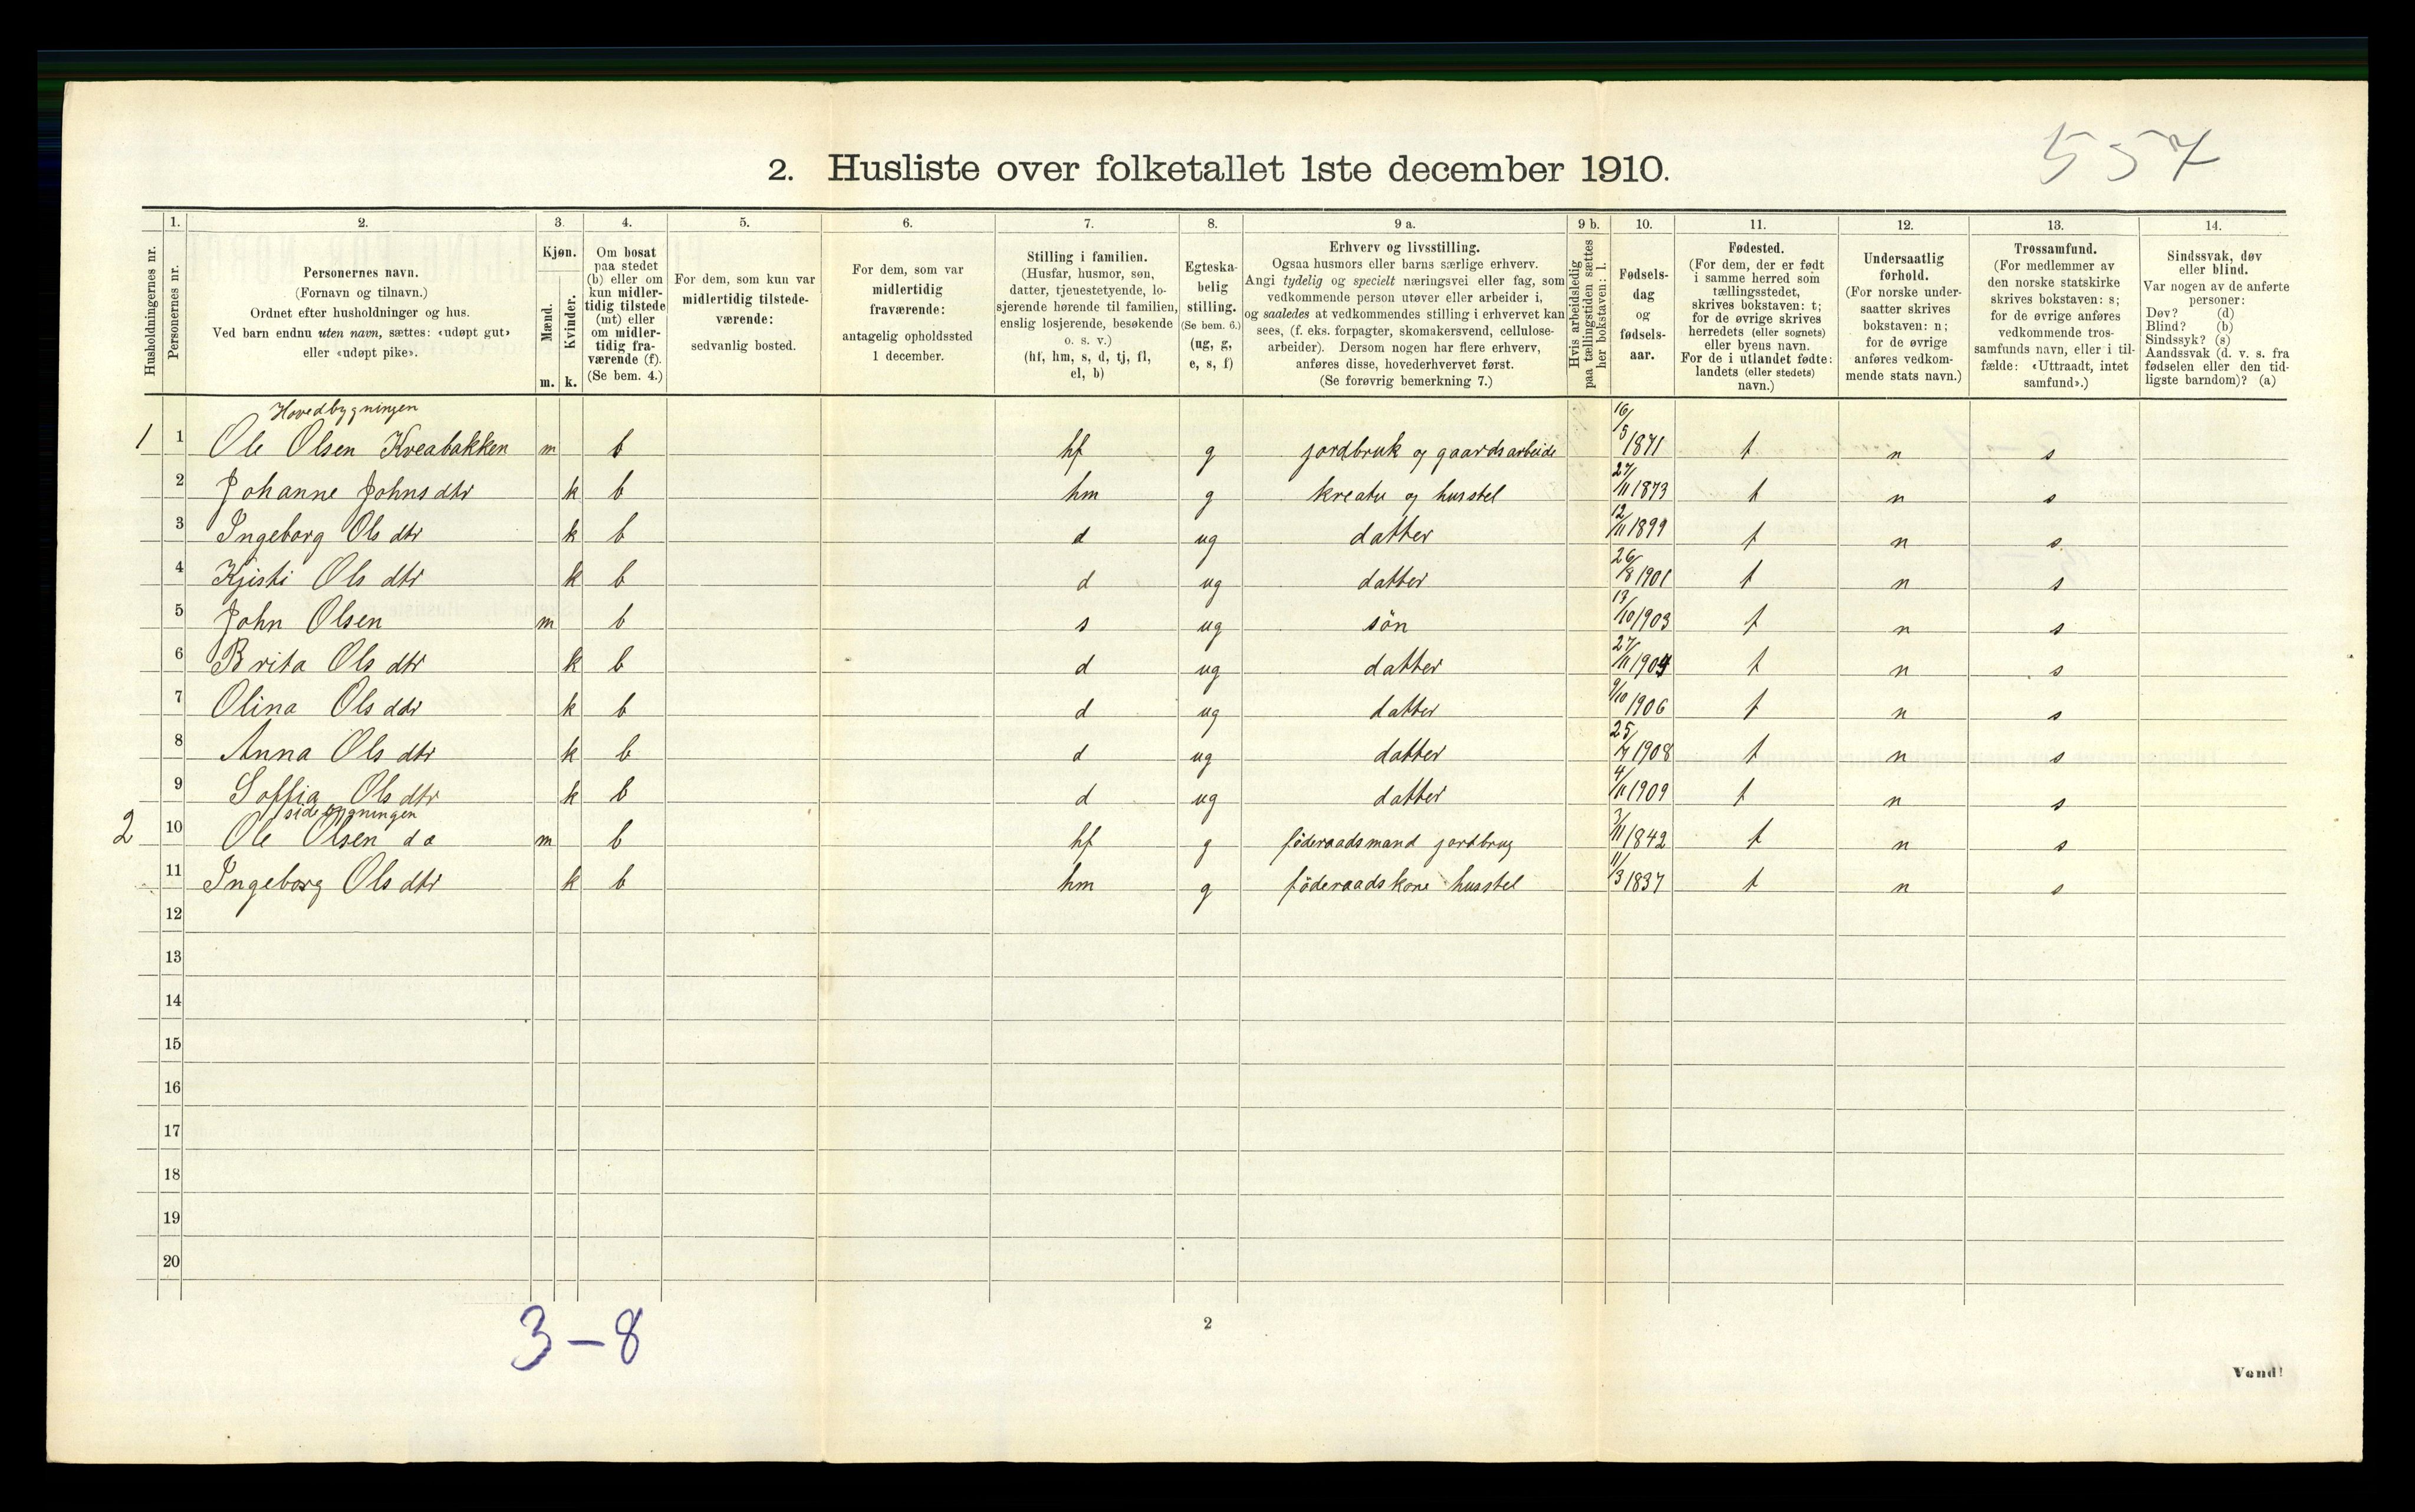 557
2. Husliste over folketallet 1ste december 1910.
Husholdningernes nr.
1.
Personernes nr.
2.
Personernes navn.
(Fornavn og tilnavn.)
Ordnet efter husholdninger og hus.
Ved barn endnu uten navn, sættes: «udøpt gut»
eller «udøpt pike».
3.
Kjøn.
Mænd.
Kvinder.
m. k.
4.
Om bosat
paa stedet
(b) eller om
kun midler-
tidig tilstede
(mt) eller
om midler-
tidig fra-
værende (f).
(Se bem. 4.)
5.
For dem, som kun var
midlertidig tilstede-
værende:
sedvanlig bosted.
6.
For dem, som var
midlertidig
fraværende:
antagelig opholdssted
1 december.
7.
Stilling i familien.
(Husfar, husmor, søn,
datter, tjenestetyende, lo-
sjerende hørende til familien,
enslig losjerende, besøkende
o. s. v.)
(hf, hm, s, d, tj, fl,
el, b)
8.
Egteska-
belig
stilling.
(Se bem. 6.)
(ug, g,
e, s, f)
9 a.
Erhverv og livsstilling.
Ogsaa husmors eller barns særlige erhverv.
Angi tydelig og specielt næringsvei eller fag, som
vedkommende person utøver eller arbeider i,
og saaledes at vedkommendes stilling i erhvervet kan
sees, (f. eks. forpagter, skomakersvend, cellulose-
arbeider). Dersom nogen har flere erhverv,
anføres disse, hovederhvervet først.
(Se forøvrig bemerkning 7.)
9 b.
Hvis arbeidsledig
paa tællingstiden sættes
her bokstaven: l.
10.
Fødsels-
dag
og
fødsels-
aar.
11.
Fødested.
(For dem, der er født
i samme herred som
tællingsstedet,
skrives bokstaven: t;
for de øvrige skrives
herredets (eller sognets)
eller byens navn.
For de i utlandet fødte:
landets (eller stedets)
navn.)
12.
Undersaatlig
forhold.
(For norske under-
saatter skrives
bokstaven: n;
for de øvrige
anføres vedkom-
mende stats navn.)
13.
Trossamfund.
(For medlemmer av
den norske statskirke
skrives bokstaven: s;
for de øvrige anføres
vedkommende tros-
samfunds navn, eller i til-
fælde: «Uttraadt, intet
samfund».)
14.
Sindssvak, døv
eller blind.
Var nogen av de anførte
personer:
Døv? (d)
Blind? (b)
Sindssyk? (s)
Aandssvak (d. v. s. fra
fødselen eller den tid-
ligste barndom)? (a)
Hovedbygningen
1 1 Ole Olsen Kveabakken m b hf g jordbruk og gaardsarbeide 16/5 1871 t n s
2 Johanne Johnsdtr k b hm g kreatu og husstel 27/11 1873 t n s
3 Ingeborg Olsdtr k b d ug datter 12/11 1899 t n s
4 Kjisti Olsdtr k b d ug datter 26/8 1901 t n s
5 John Olsen m b s ug sön 13/10 1903 t n s
6 Brita Olsdtr k b d ug datter 27/11 1904 t n s
7 Olina Olsddr k b d ug datter 9/10 1906 t n s
8 Anna Olsdtr k b d ug datter 25/7 1908 t n s
9 Soffia Olsdtr k b d ug datter 4/11 1909 t n s
sidebygningen
2 10 Ole Olsen do m b hf g föderaadsmand jordbrug 3/11 1842 t n s
11 Ingeborg Olsdtr k b hm g föderaadskone husstel 11/3 1837 t n s
12
13
14
15
16
17
18
19
20
3-8
2
Vend!